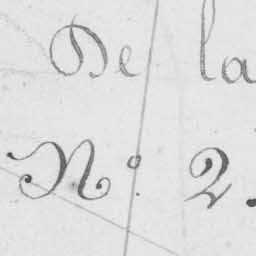 De la
N.º 2.